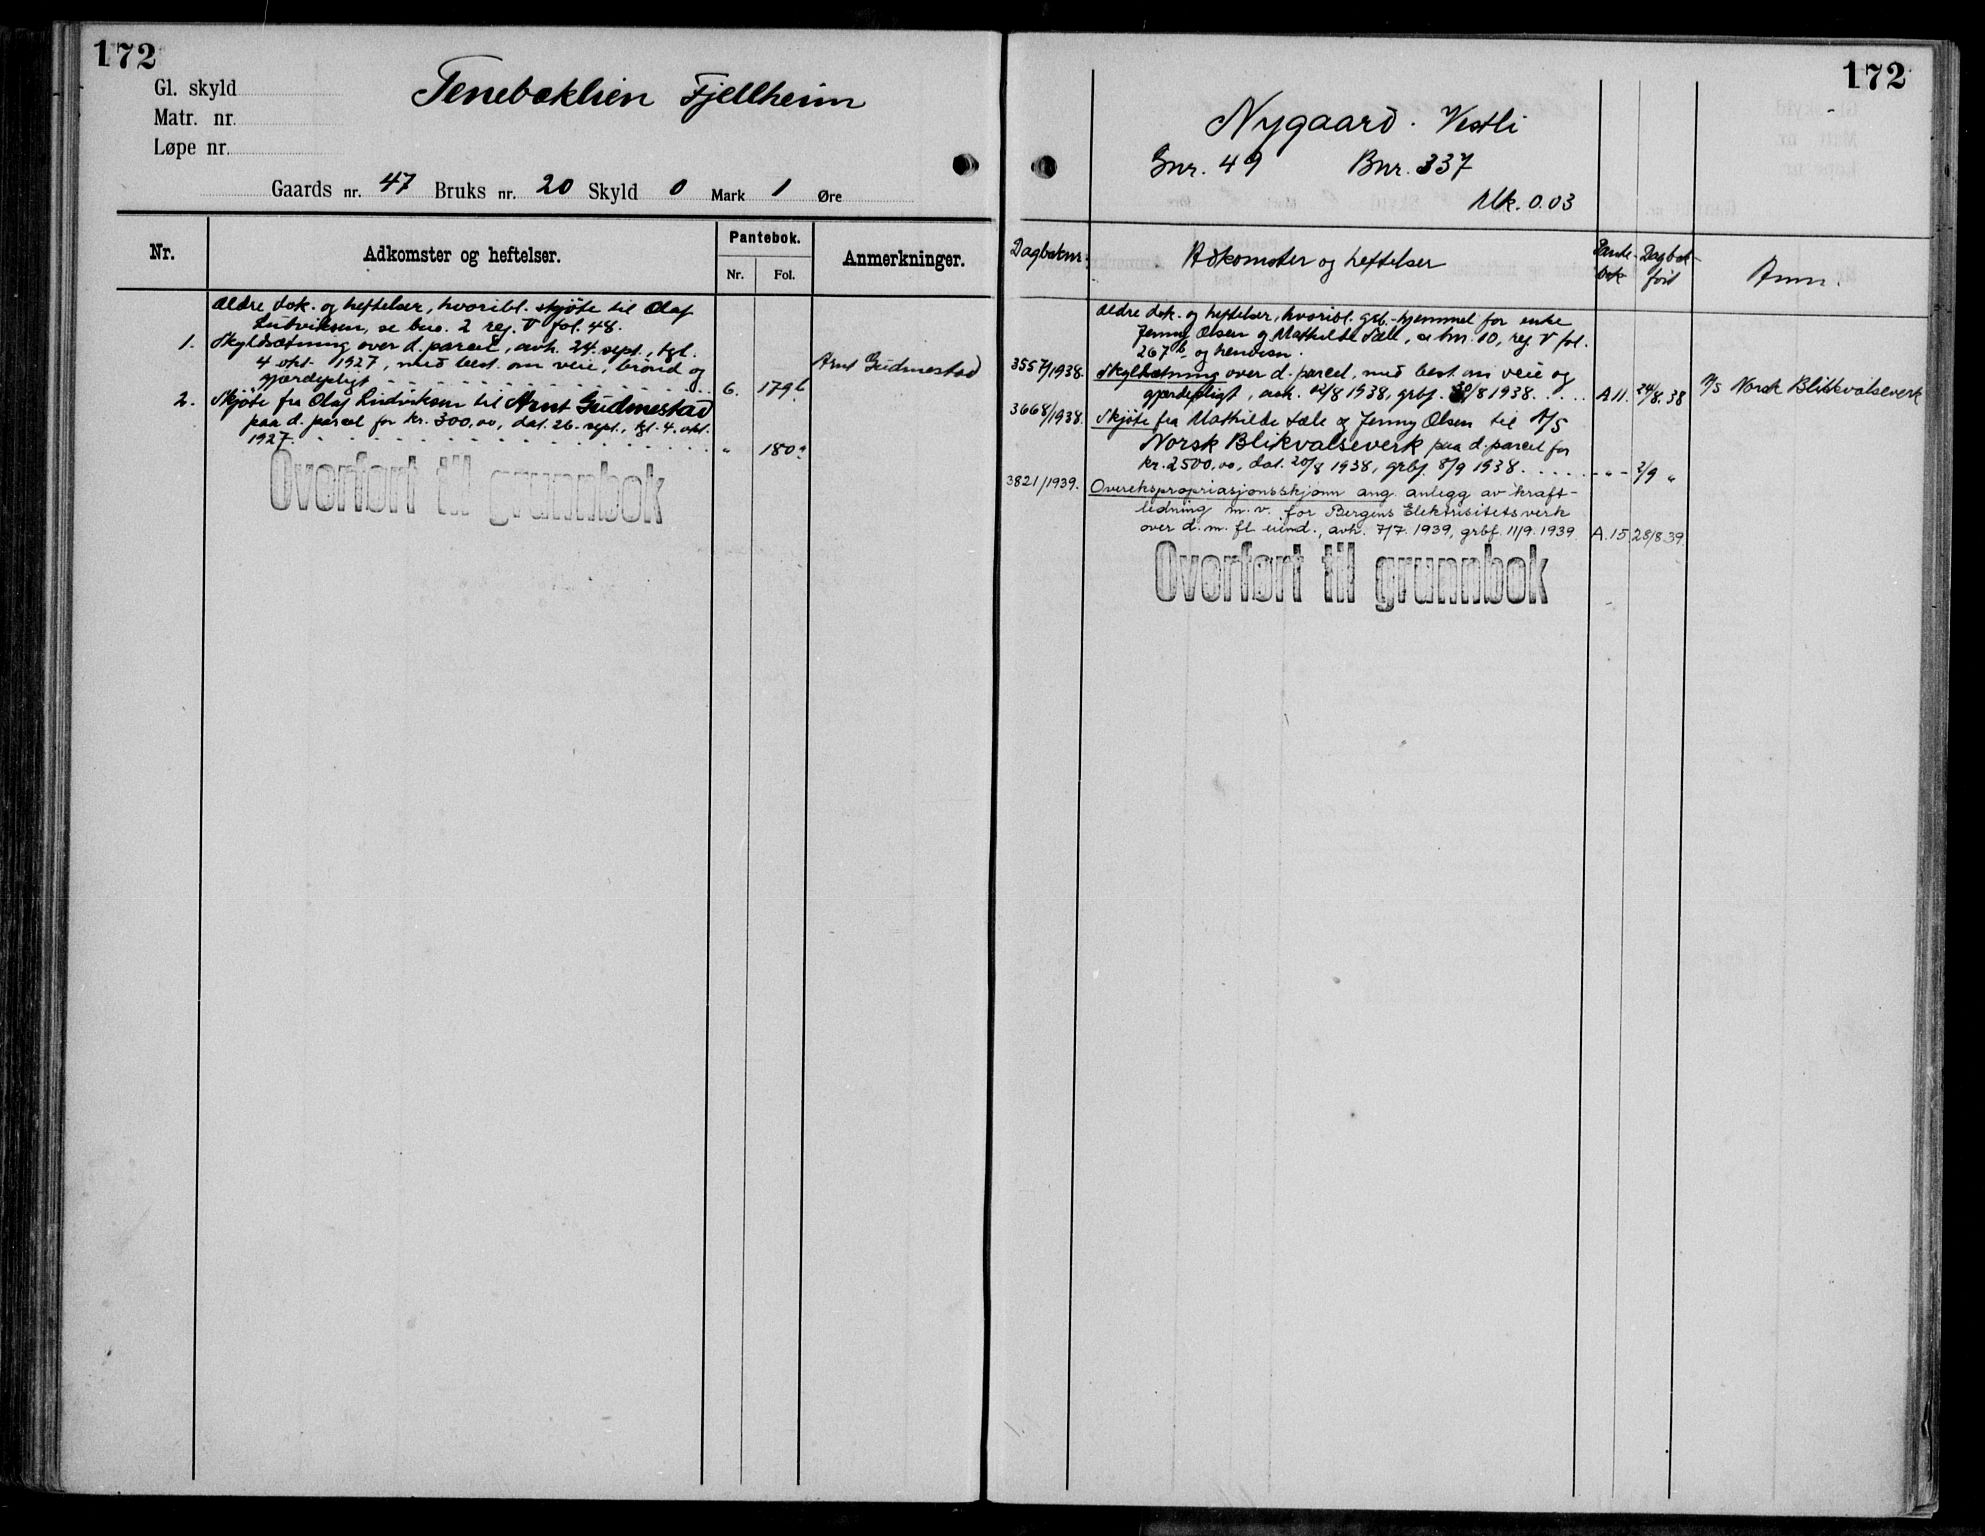 172
Gl. skyld
Matr. nr.
Løpe nr.
Tenebekklien Fjellheim
Gaards nr. 47 Bruks nr. 20 Skyld 0 Mark 1 Øre
Nr.
Adkomster og heftelser.
Pantebok.
Nr. Fol.
Anmerkninger.
Ældre dok. og heftelser, hvoribl. skjöte til Olaf
Ludviksen, se bno. 2 reg. V fol. 48.
1. Skyldsætning over d. parcel, avh. 24. sept., tgl.
4 okt. 1927, med best. om veie, brönd og
gjærdepligt 6. 179b
Arnt Gudmestad
2. Skjöte fra Olaf Ludviksen til Arnt Gudmestad
paa d. parcel for kr. 300,00, dat. 26. sept., tgl. 4. okt.
1927. " 180a
Overført til grunnbok
172
Nygaard. Vestli
Gnr. 49 Bnr. 337
Mk. 0.03
Dagboknr. Adkomster og heftelser Pante-bok Dagbok-ført Anm.
Ældre dok. og heftelser, hvoribl. grb.-hjemmel for enke
Jenny Olsen og Mathilde Sæle, se bnr. 10, reg V fol.
267b og henvisn.
3557/1938. Skyldsætning over d. parcel, med best. om veie og
gjærdepligt, avh. 12/8 1938, grbf. 30/8 1938. A 11. 24/8. 38
A/S Norsk Blikkvalseverk
3668/1938. Skjöte fra Mathilde Sæle og Jenny Olsen til A/S
Norsk Blikvalseverk paa d. parcel for
kr. 2500,00, dat. 20/8 1938, grbf. 8/9 1938. - " - 2/9 "
3821/1939. Overekspropriasjonsskjønn ang. anlegg av kraft-
ledning m.v. for Bergens Elektrisitetsverk
over d. m. fl. eiend., avh. 7/7. 1939, grbf. 11/9. 1939. A. 15 28/8 39.
Overført til grunnbok